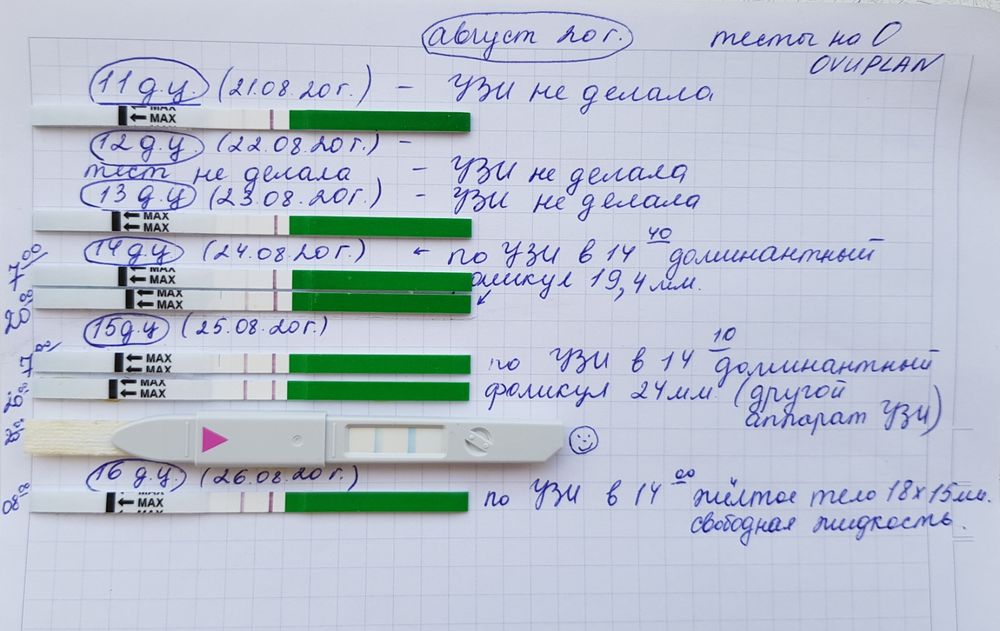 август 20г. тесты на О
OVUPLAN
11 д.ц. (21.08.20г.) - УЗИ не делала
MAX
MAX
12 д.ц (22.08.20г.) -
тест не делала - УЗИ не делала
13 д.ц (23.08.20г.) - УЗИ не делала
MAX
MAX
14 д.ц (24.08.20г.) ← по УЗИ в 14 40 доминантный
7 00 MAX
MAX фоликул 19,4 мм.
20 00 MAX
MAX
15 д.ц (25.08.20г.)
7 00 MAX по УЗИ в 14 10 доминантный
MAX
MAX фоликул 24 мм (другой
аппарат УЗИ)
16 д.ц (26.08.20г.)
08 MAX по УЗИ в 14 00 жёлтое тело 18х15мм.
свободная жидкость.